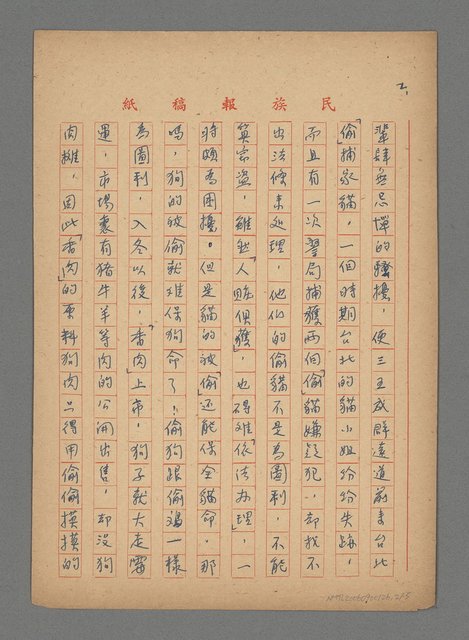 民族報稿紙
2.
輩肆無忌憚的騷擾，便三五成群遠道前來台北
「偷」捕家貓，一個時期台北的貓小姐紛紛失踪，
而且有一次警局捕獲兩個「偷」貓嫌疑犯，却找不
出法條來処理，他們的偷貓不是為圖利，不能
算宗盜，雖然「人」賍俱獲，也碍難「依」法办「理」，一
時頗為困擾。但是貓的被「偷」还能保全貓命，那
嗎，狗的被偷就难保狗命了！偷狗跟偷鷄一樣
為圖利，入冬以後，「香肉」上市，狗子就大走霉
運，市場裏有豬牛羊等肉的公開出售，却没狗
肉攤，因此「香肉」的原料狗肉只得用偷偷摸摸的